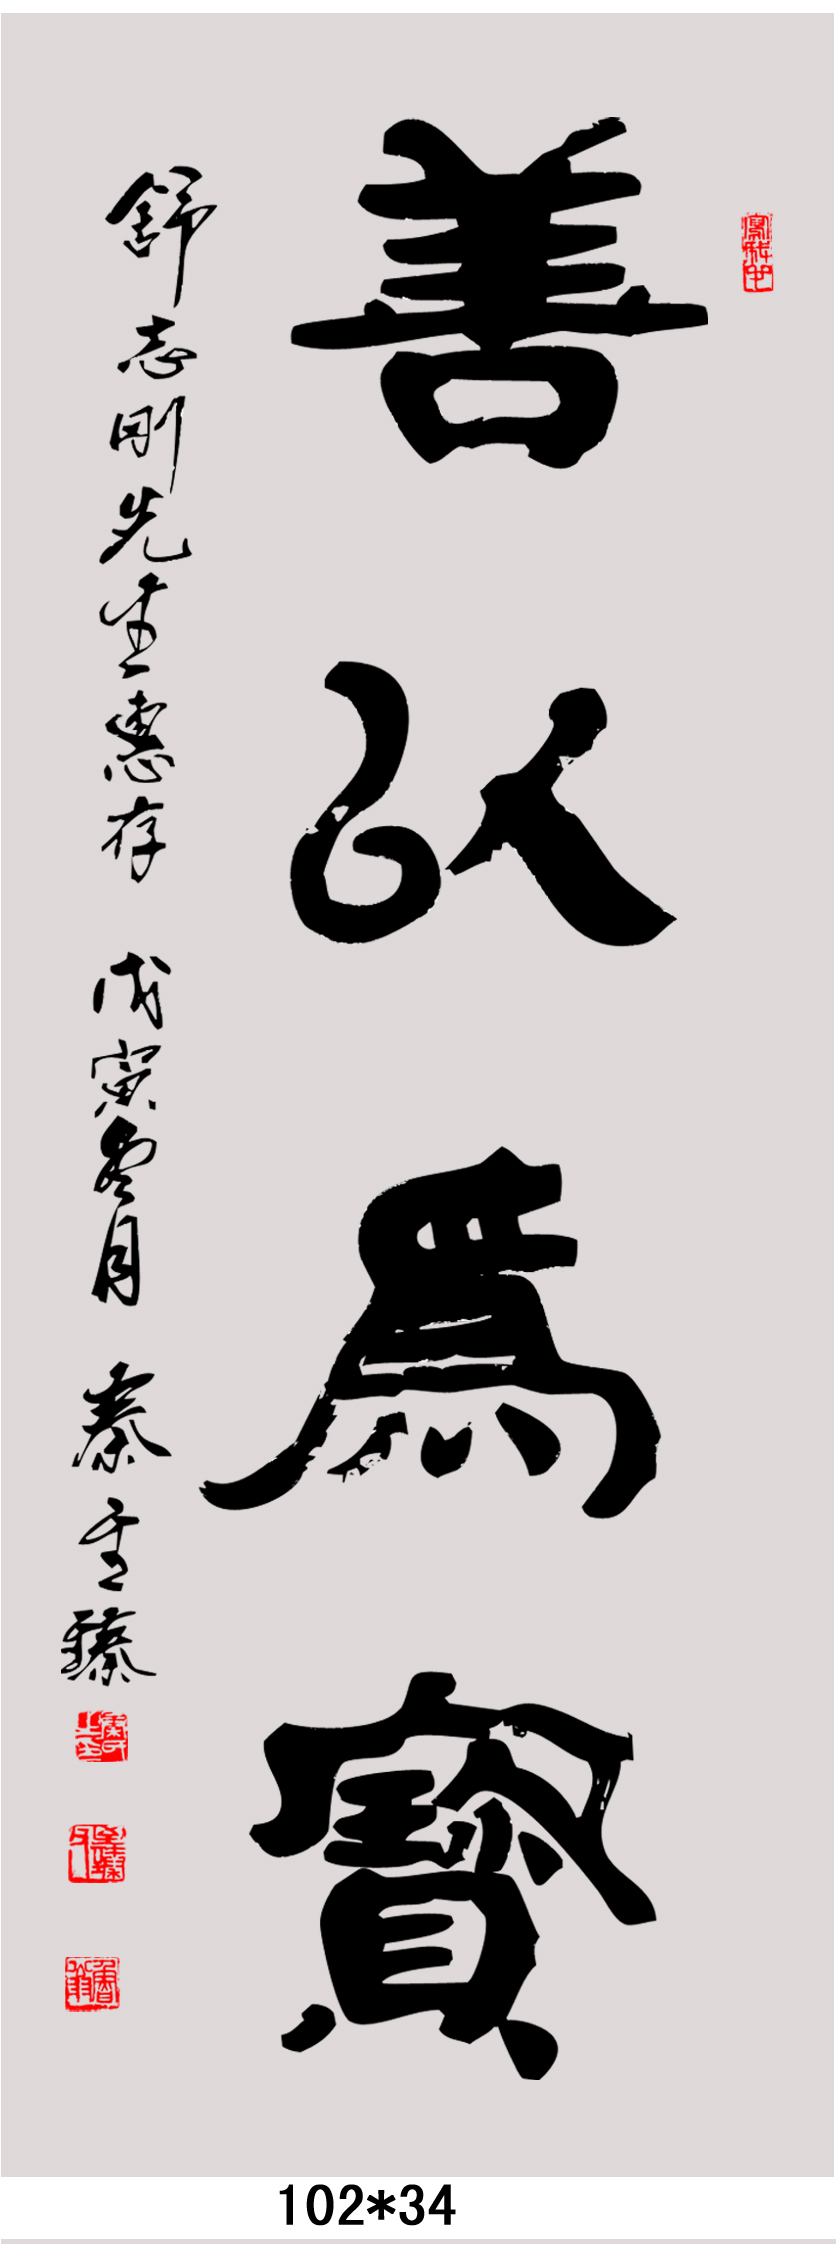 善以為寶
舒志刚先生惠存 戊寅冬月 秦士臻
102*34